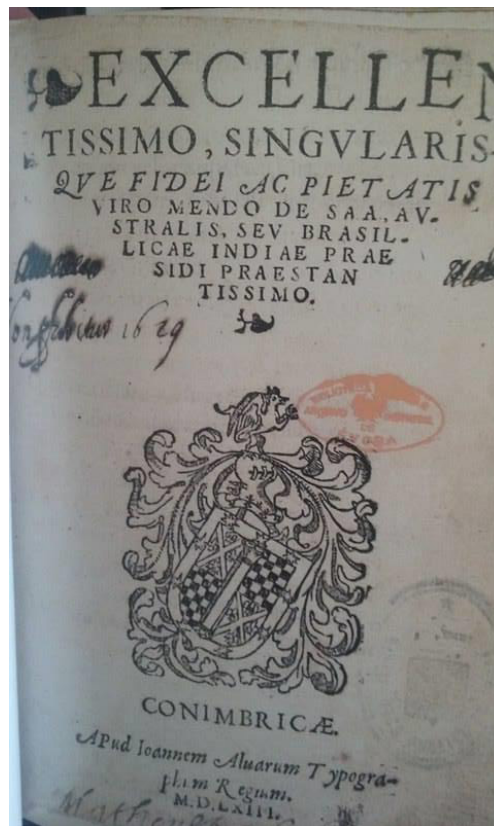 EXCELLEN
TISSIMO, SINGVLARIS-
QVE FIDEI AC PIETATIS
VIRO MENDO DE SAA, AV-
STRALIS, SEV BRASIL-
LICAE INDIAE PRAE
SIDI PRAESTAN
TISSIMO.
1629
BIBLIOTHECA
DE
EVORA
CONIMBRICÆ.
Apud Ioannem Aluarum Typogra-
phum Regium.
M.D.LXIII.